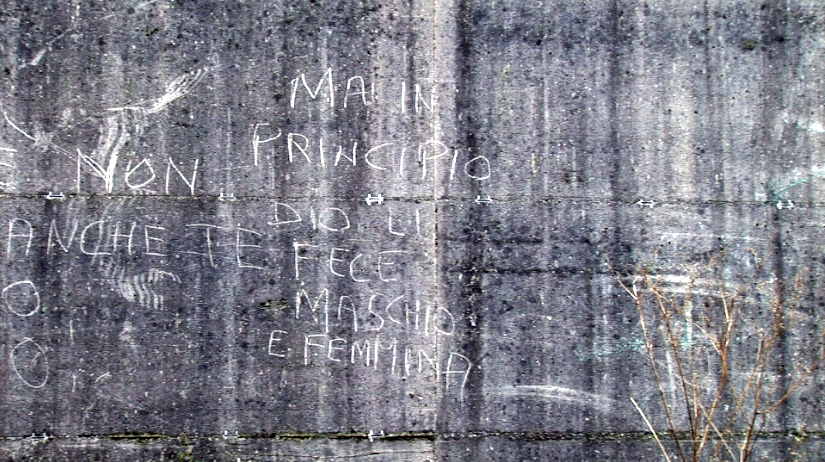 E NON
ANCHE TE
O
O
MA IN
PRINCIPIO
DIO LI
FECE
MASCHIO
E FEMMINA